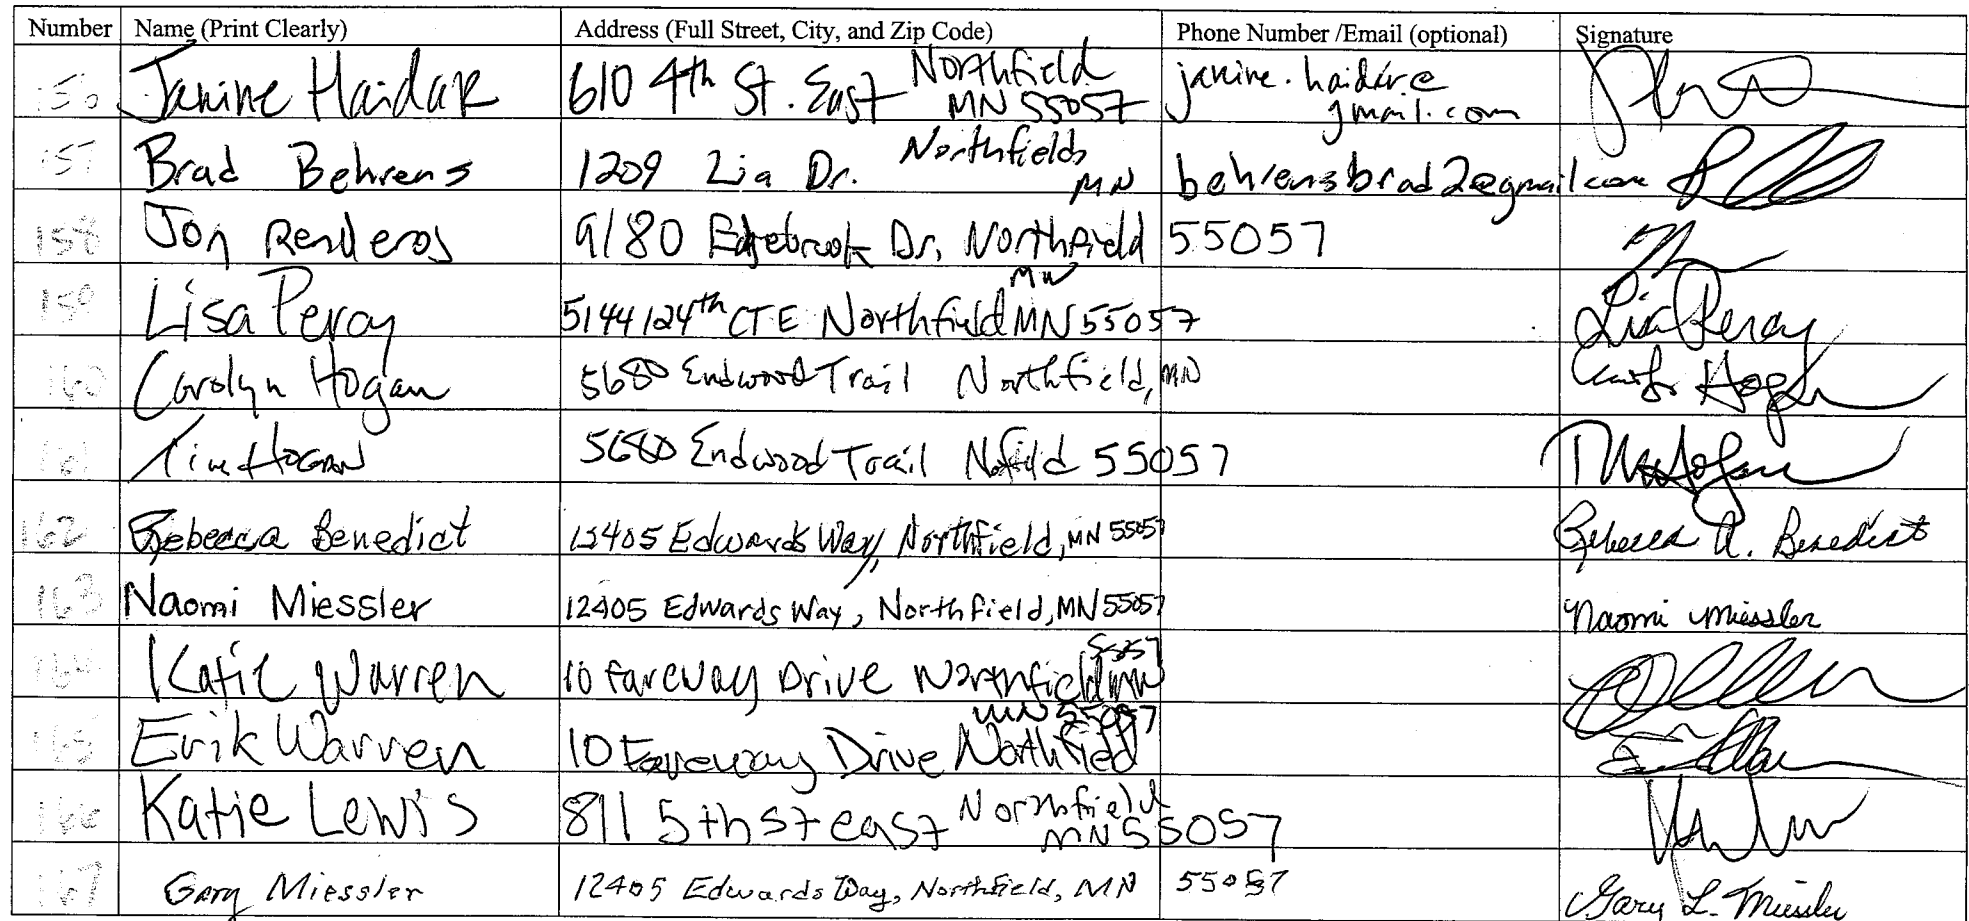 Number Name (Print Clearly) Address (Full Street, City, and Zip Code) Phone Number /Email (optional) Signature
156 Janine Haidar 610 4th St. East Northfield MN 55057 janine.haidar@gmail.com
157 Brad Behrens 1209 Lia Dr. Northfield, MN behrensbrad2@gmail.com
158 Jon Renderos 9180 Edgebrook Dr, Northfield MN 55057
159 Lisa Peroy 5144 124th CT E Northfield MN 55057 Lisa Peroy
160 Carolyn Hogan 5680 Endwood Trail Northfield, MN Hogan
161 Tim Hogan 5680 Endwood Trail Nofield 55057
162 Rebecca Benedict 12405 Edwards Way, Northfield, MN 55057 Rebecca A. Benedict
163 Naomi Miessler 12405 Edwards Way, Northfield, MN 55057 Naomi Miessler
164 Katie Warren 10 Fareway Drive Northfield MN 55057
165 Erik Warren 10 Fareway Drive Northfield MN 55057
166 Katie Lewis 811 5th St east Northfield MN 55057
167 Gary Miessler 12405 Edwards Way, Northfield, MN 55057 Gary L. Miessler